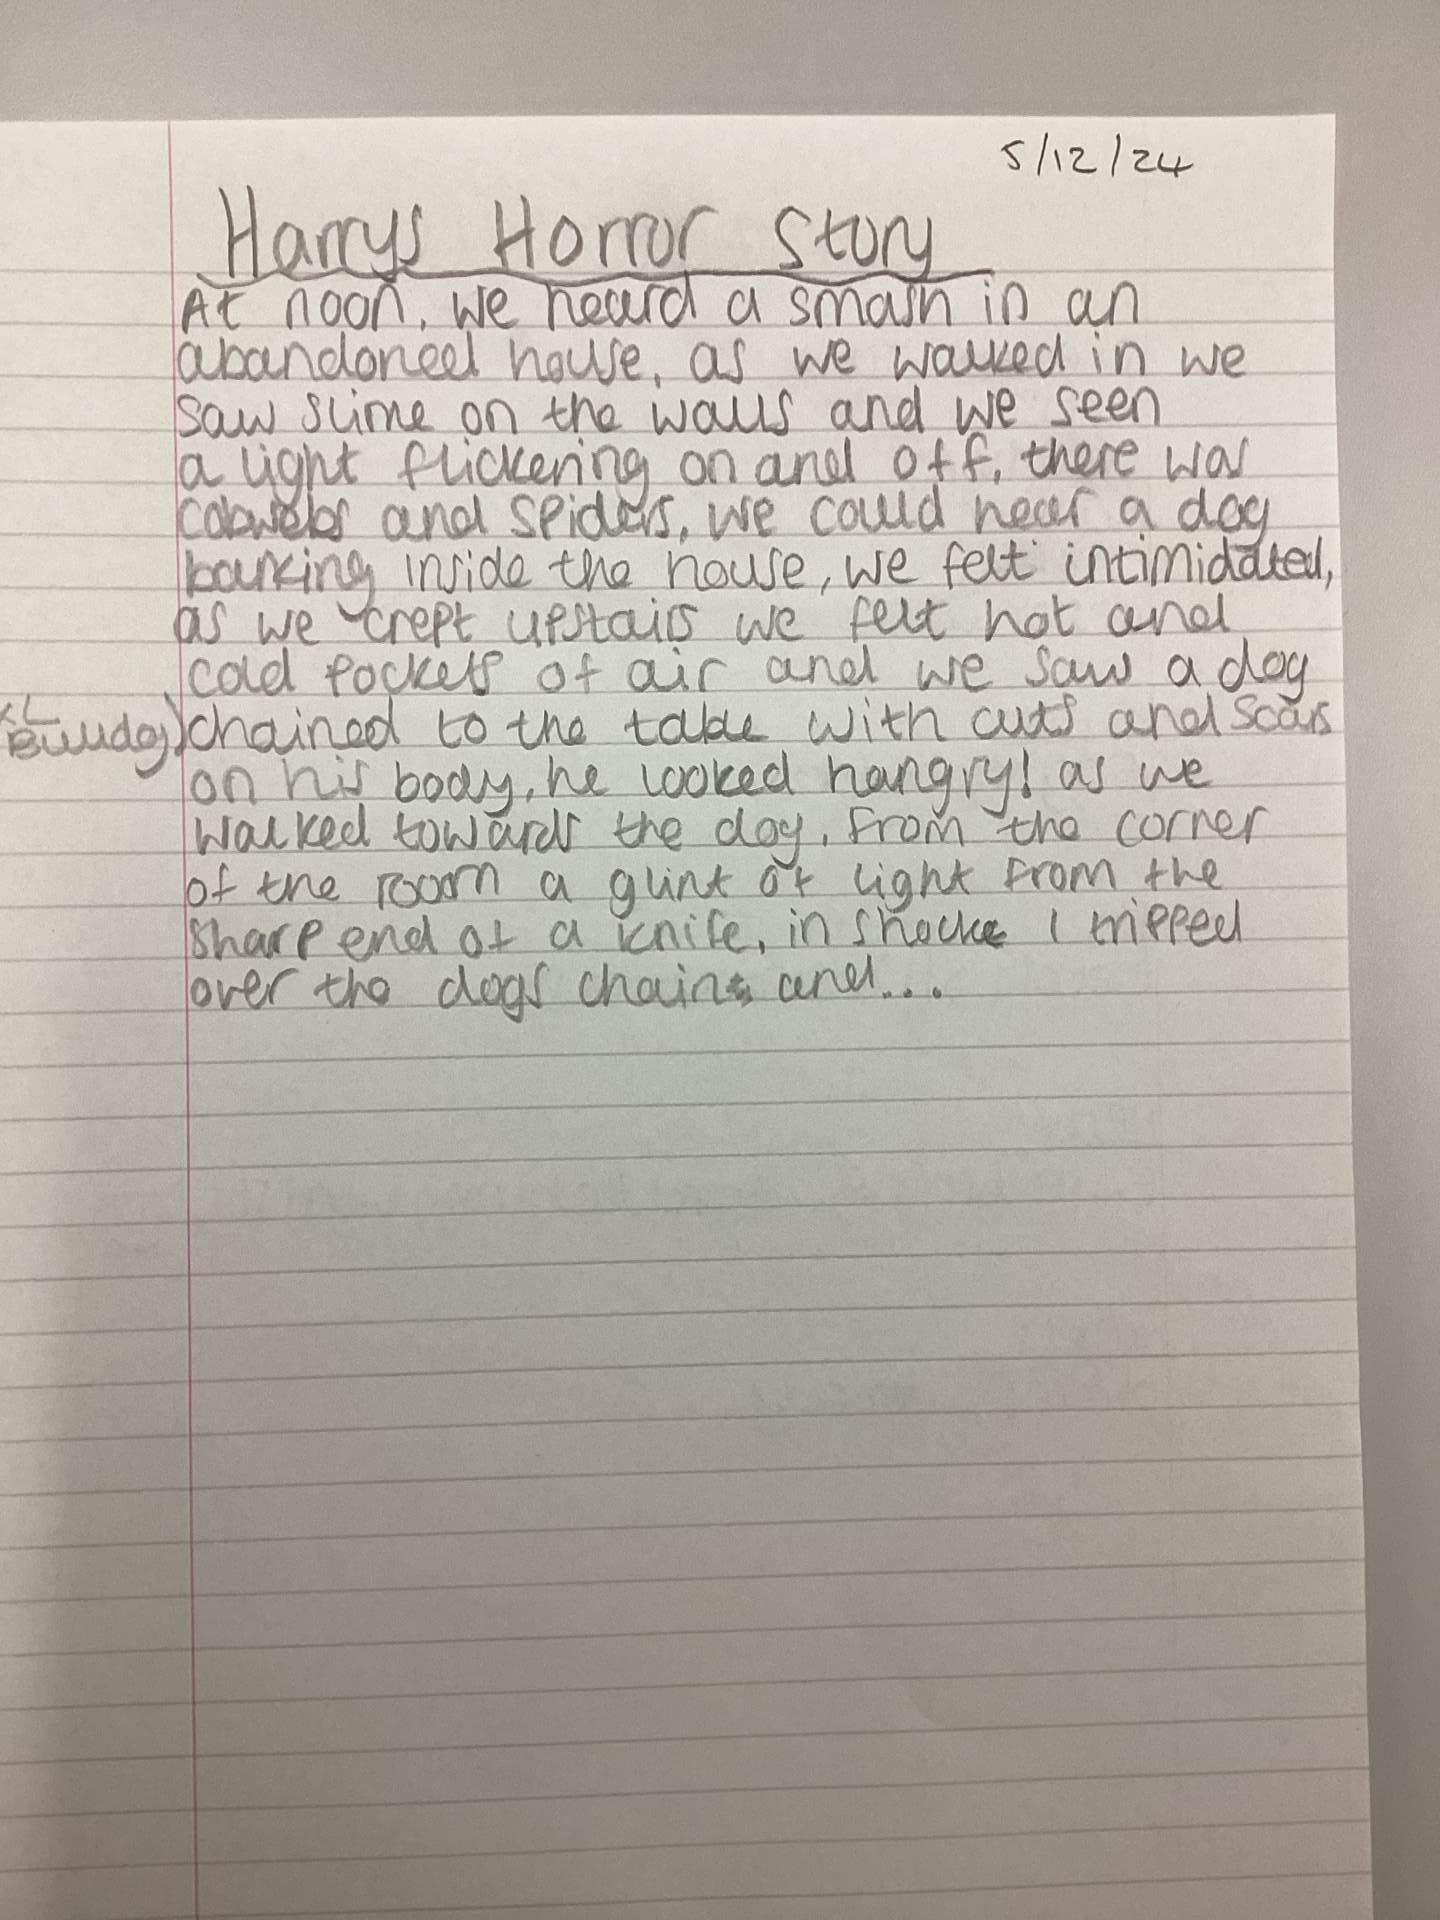 5/12/24
Harrys Horror Story
At noon, we heard a smash in an
abandoned house, as we walked in we
saw slime on the walls and we seen
a light flickering on and off, there was
cobwebs and spiders, we could hear a dog
barking inside the house, we felt intimidated,
as we crept upstairs we felt hot and
cold pockets of air and we saw a dog
XL
Bulldog) chained to the table with cuts and scars
on his body, he looked hangry! as we
walked towards the dog, from the corner
of the room a glint of light from the
sharp end of a knife, in shock I tripped
over the dogs chain and...